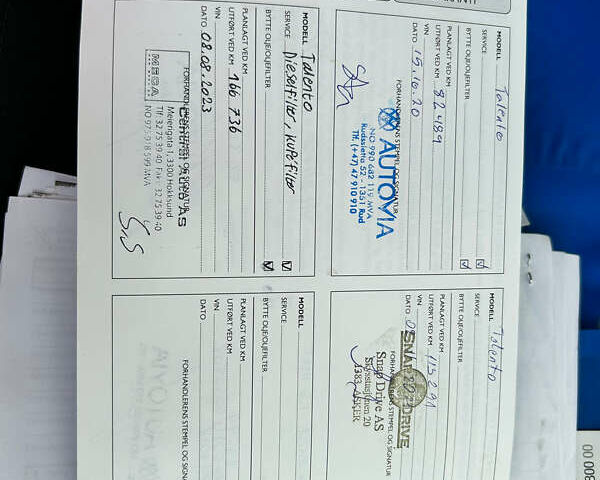 MODELL Talento
SERVICE
BYTTE OLJE/OLJEFILTER
PLANLAGT VED KM
UTFØRT VED KM 82489
VIN
DATO 15.10.20
FORHANDLERENS STEMPEL OG SIGNATUR
AUTOVIA
NO 990 682 119 MVA
Rudssletta 52 - 1351 Rud
Tlf. (+47) 47 910 910
MODELL Talento
SERVICE
BYTTE OLJE/OLJEFILTER
PLANLAGT VED KM
UTFØRT VED KM 115291
VIN
DATO
FORHANDLERENS STEMPEL OG SIGNATUR
SNAP DRIVE
Snap Drive AS
1383 ASKER
MODELL Talento
SERVICE Dieselfilter, kupéfilter
BYTTE OLJE/OLJEFILTER
PLANLAGT VED KM
UTFØRT VED KM 166 736
VIN
DATO 08.08.2023
FORHANDLERENS STEMPEL OG SIGNATUR
MECA
Meiengata 1, 3300 Hokksund
Tlf: 32 75 39 40 Fax: 32 75 39 40
MODELL
SERVICE
BYTTE OLJE/OLJEFILTER
PLANLAGT VED KM
UTFØRT VED KM
VIN
DATO
FORHANDLERENS STEMPEL OG SIGNATUR